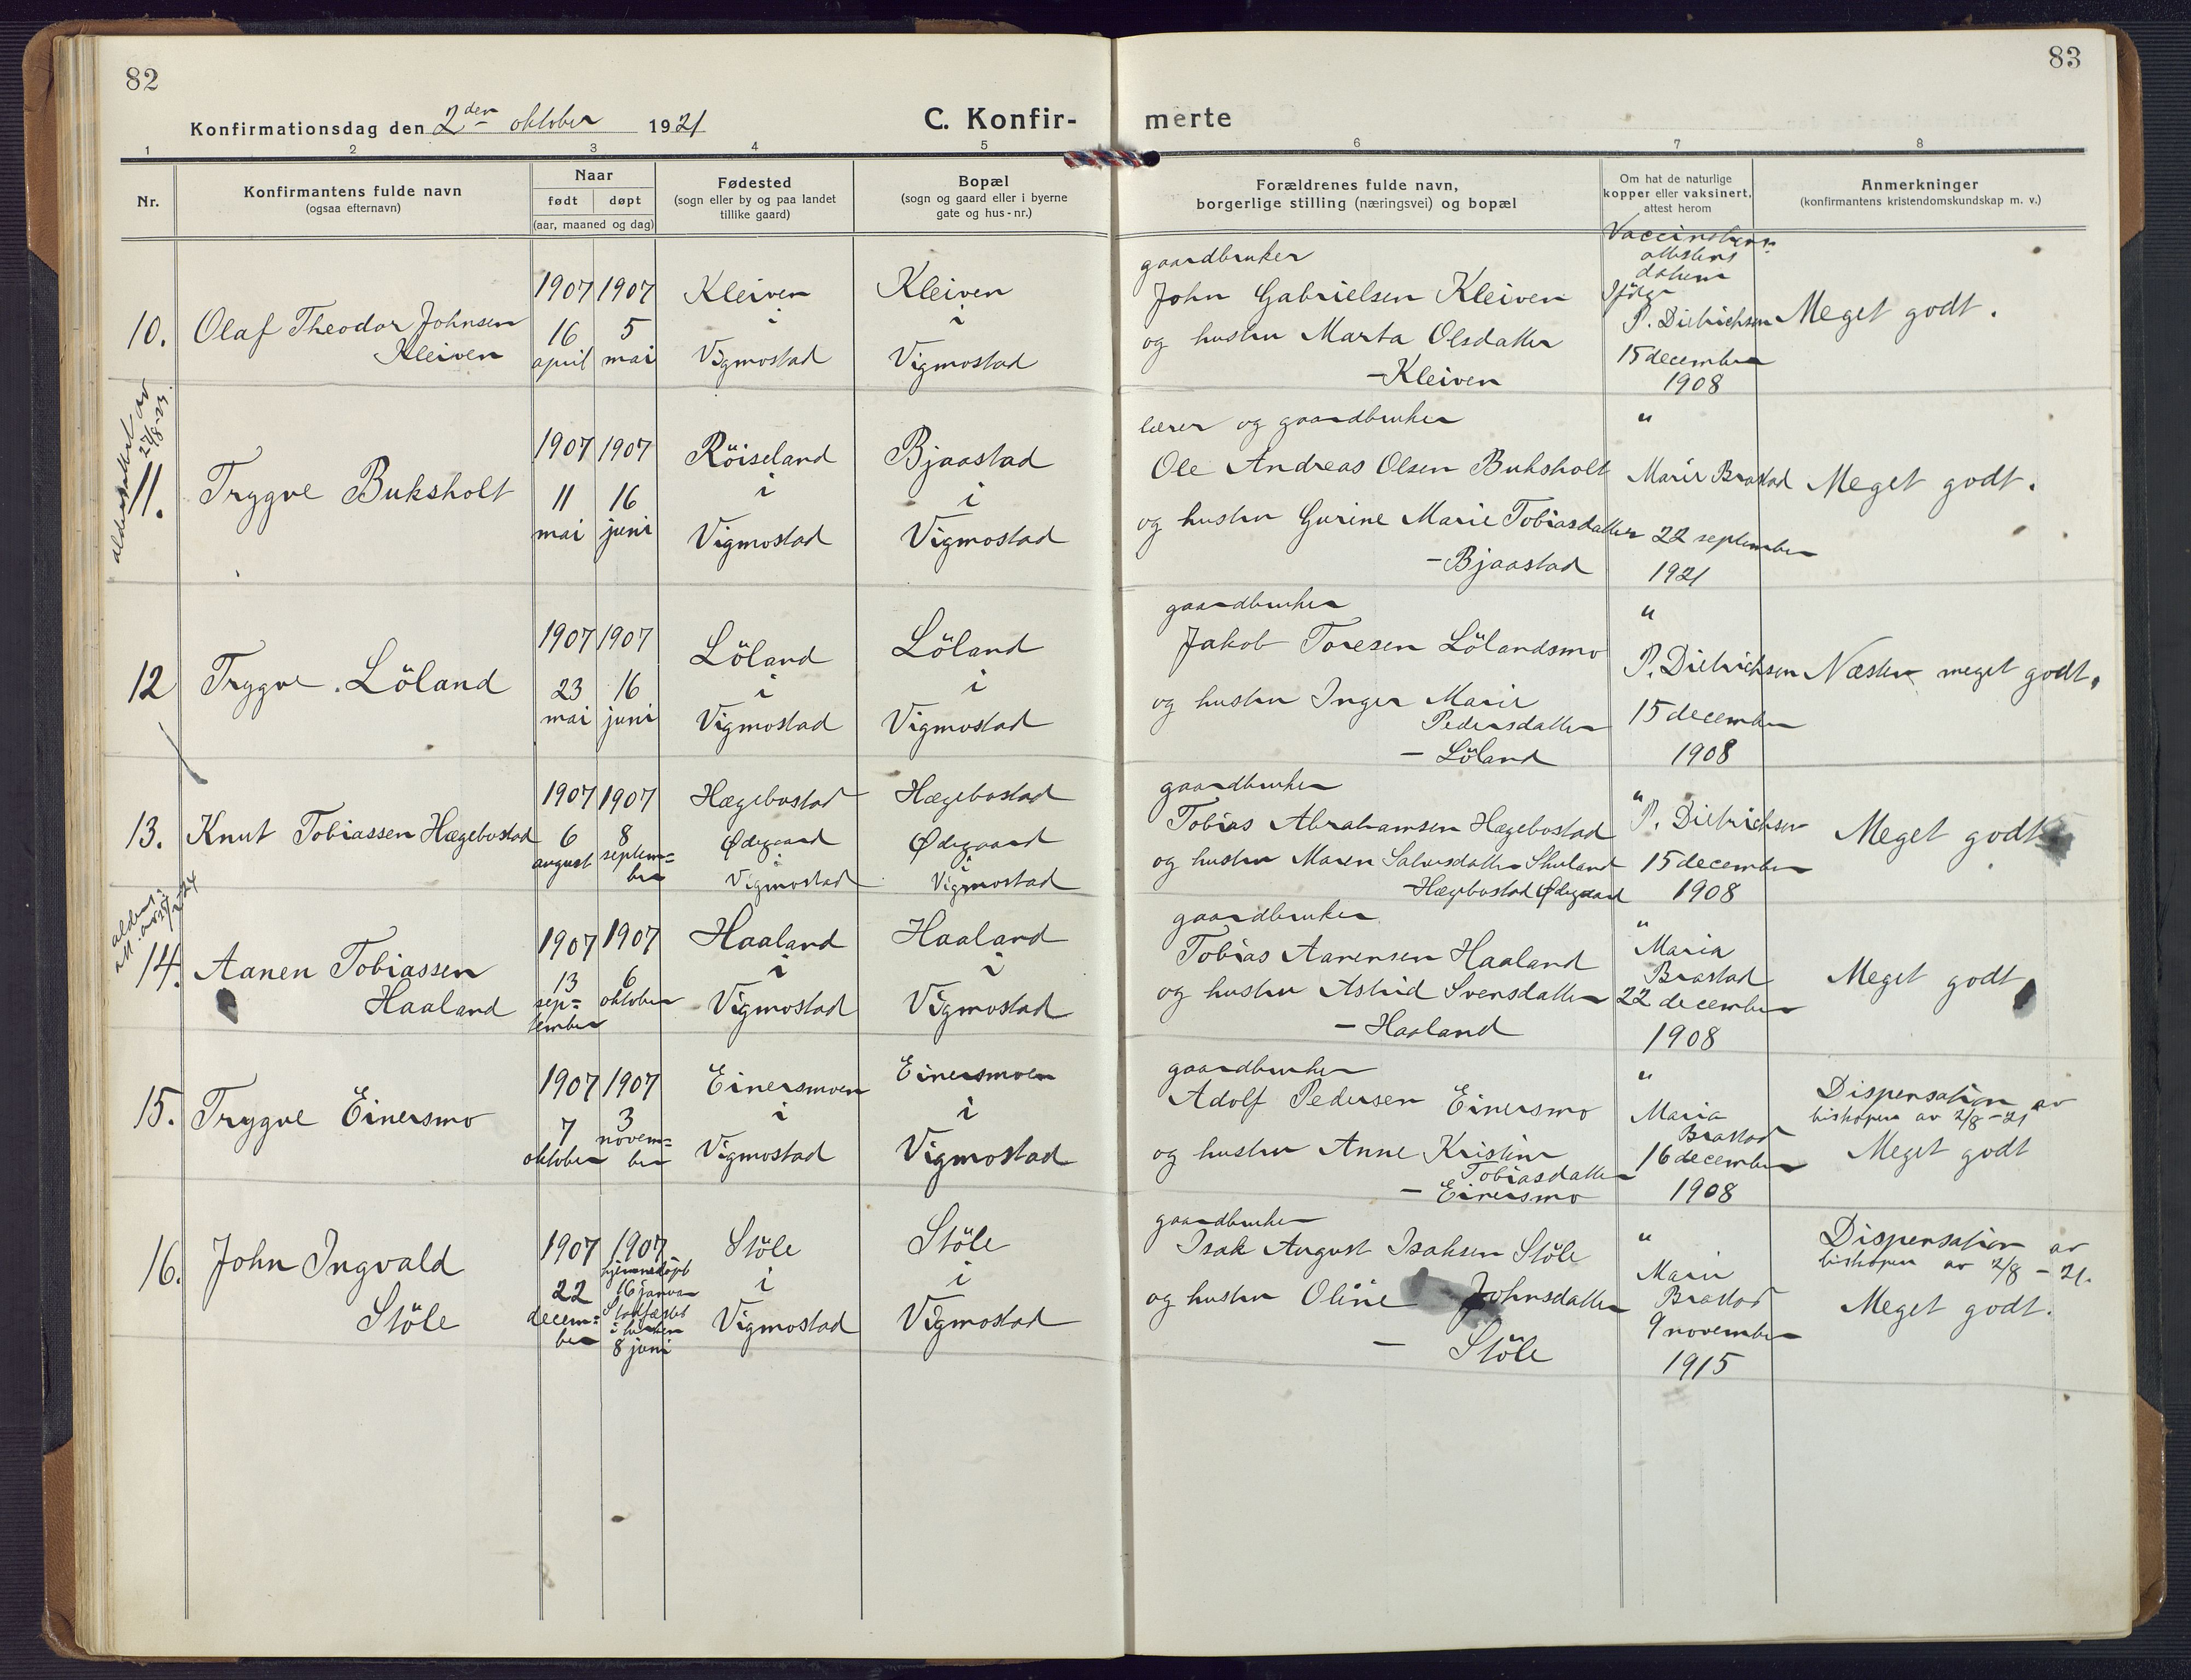 82
83
Konfirmationsdag den 2den oktober 1921
C. Konfir-
merte
1 2 3 4 5 6 7 8
Nr.
Konfirmantens fulde navn
(ogsaa efternavn)
Naar
født døpt
(aar, maaned og dag)
Fødested
(sogn eller by og paa landet
tillike gaard)
Bopæl
(sogn og gaard eller i byerne
gate og hus-nr.)
Forældrenes fulde navn,
borgerlige stilling (næringsvei) og bopæl
Om hat de naturlige
kopper eller vaksinert,
attest herom
Anmerkninger
(konfirmantens kristendomskundskap m. v.)
10.
Olaf Theodor Johnsen
Kleiven
1907 1907
16 5
april mai
Kleiven
i
Vigmostad
Kleiven
i
Vigmostad
gaardbruker
John Gabrielsen Kleiven
og hustru Marta Olsdatter
- Kleiven
attestens
datum
P. Dietrichsen
15 december
1908
Meget godt.
27/8-23
11.
Trygve Buksholt
1907 1907
11 16
mai juni
Röiseland
i
Vigmostad
Bjaastad
i
Vigmostad
lærer og gaardbruker
Ole Andreas Olsen Buksholt
og hustru Gurine Marie Tobiasdatter
- Bjaastad
"
Marie Brastad
22 september
1921
Meget godt.
12
Trygve Löland
1907 1907
23 16
mai juni
Löland
i
Vigmostad
Löland
i
Vigmostad
gaardbruker
Jakob Toresen Lölandsmo
og hustru Inger Marie
Pedersdatter
- Löland
"
P. Dietrichsen
15 december
1908
Næsten meget godt.
13.
Knut Tobiassen Hægebostad
1907 1907
6 8
august septem=
ber
Hægebostad
Ødegaard
i
Vigmostad
Hægebostad
Ødegaard
i
Vigmostad
gaardbruker
Tobias Abrahamsen Hægebostad
og hustru Maren Salvesdatter Skuland
- Hægebostad Ødegaard
"
P. Dietrichsen
15 december
1908
Meget godt
14.
Aanen Tobiassen
Haaland
1907 1907
13 6
sep= oktober
tember
Haaland
i
Vigmostad
Haaland
i
Vigmostad
gaardbruker
Tobias Aanensen Haaland
og hustru Astrid Svensdatter
- Haaland
"
Maria
Brastad
22 december
1908
Meget godt
15.
Trygve Einersmo
1907 1907
7 3
oktober novem=
ber
Einersmoen
i
Vigmostad
Einersmoen
i
Vigmostad
gaardbruker
Adolf Pedersen Einersmo
og hustru Anne Kristine
Tobiasdatter
- Einersmo
"
Maria
Brastad
16 december
1908
Dispensation av
biskopen av 2/8-21
Meget godt
16.
John Ingvald
Stöle
1907 1907
22
decem=
ber
hjemmedöpt
16 januar
Stadfæstet
i kirken
8 juni
Stöle
i
Vigmostad
Stöle
i
Vigmostad
gaardbruker
Isak August Isaksen Stöle
og hustru Oline Johnsdatter
- Stöle
"
Marie
Brastad
9 november
1915
Dispensation av
biskopen av 2/8 - 21.
Meget godt.